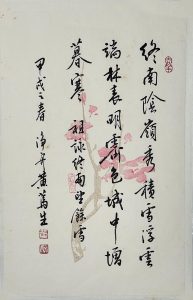 終南陰嶺秀積雪浮雲
端林表明霽色城中增
暮寒 祖詠終南望餘雪
甲戌之春 黃篤生